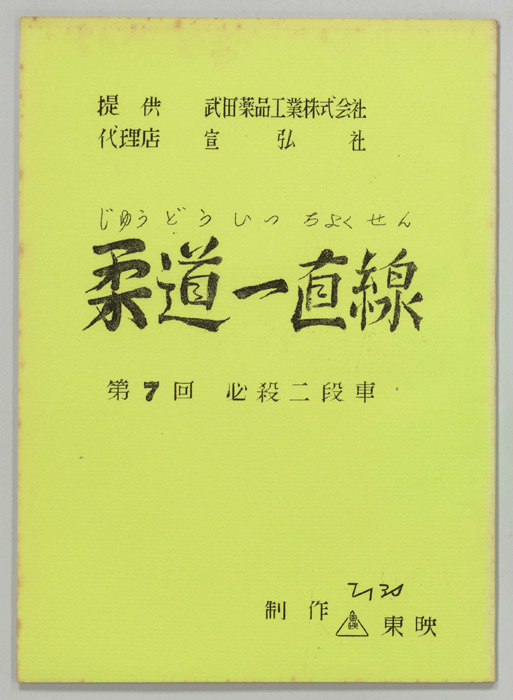 提供 武田薬品工業株式会社
代理店 宣弘社
じゅうどういっちょくせん
柔道一直線
第7回 必殺二段車
制作 東映